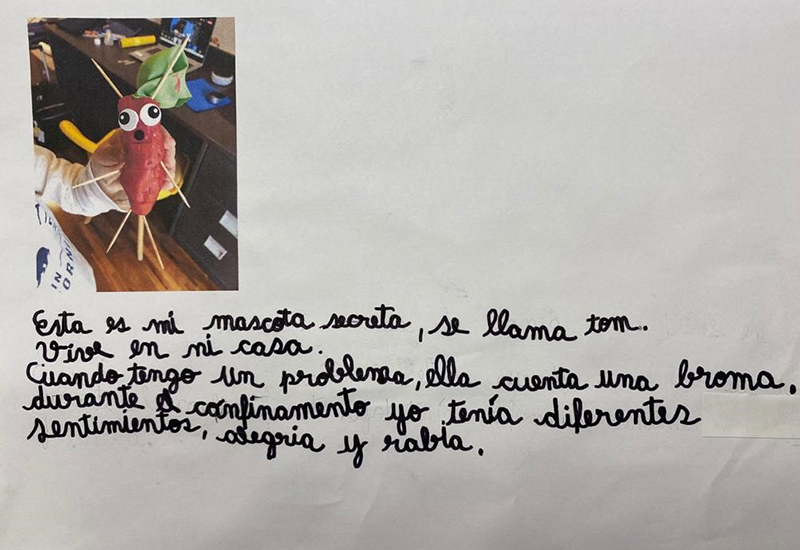 Esta es mi mascota secreta, se llama tom.
Vive en mi casa.
Cuando tengo un problema, ella cuenta una broma,
durante el confinamento yo tenía diferentes
sentimientos, alegria y rabia.
IN
ORNI